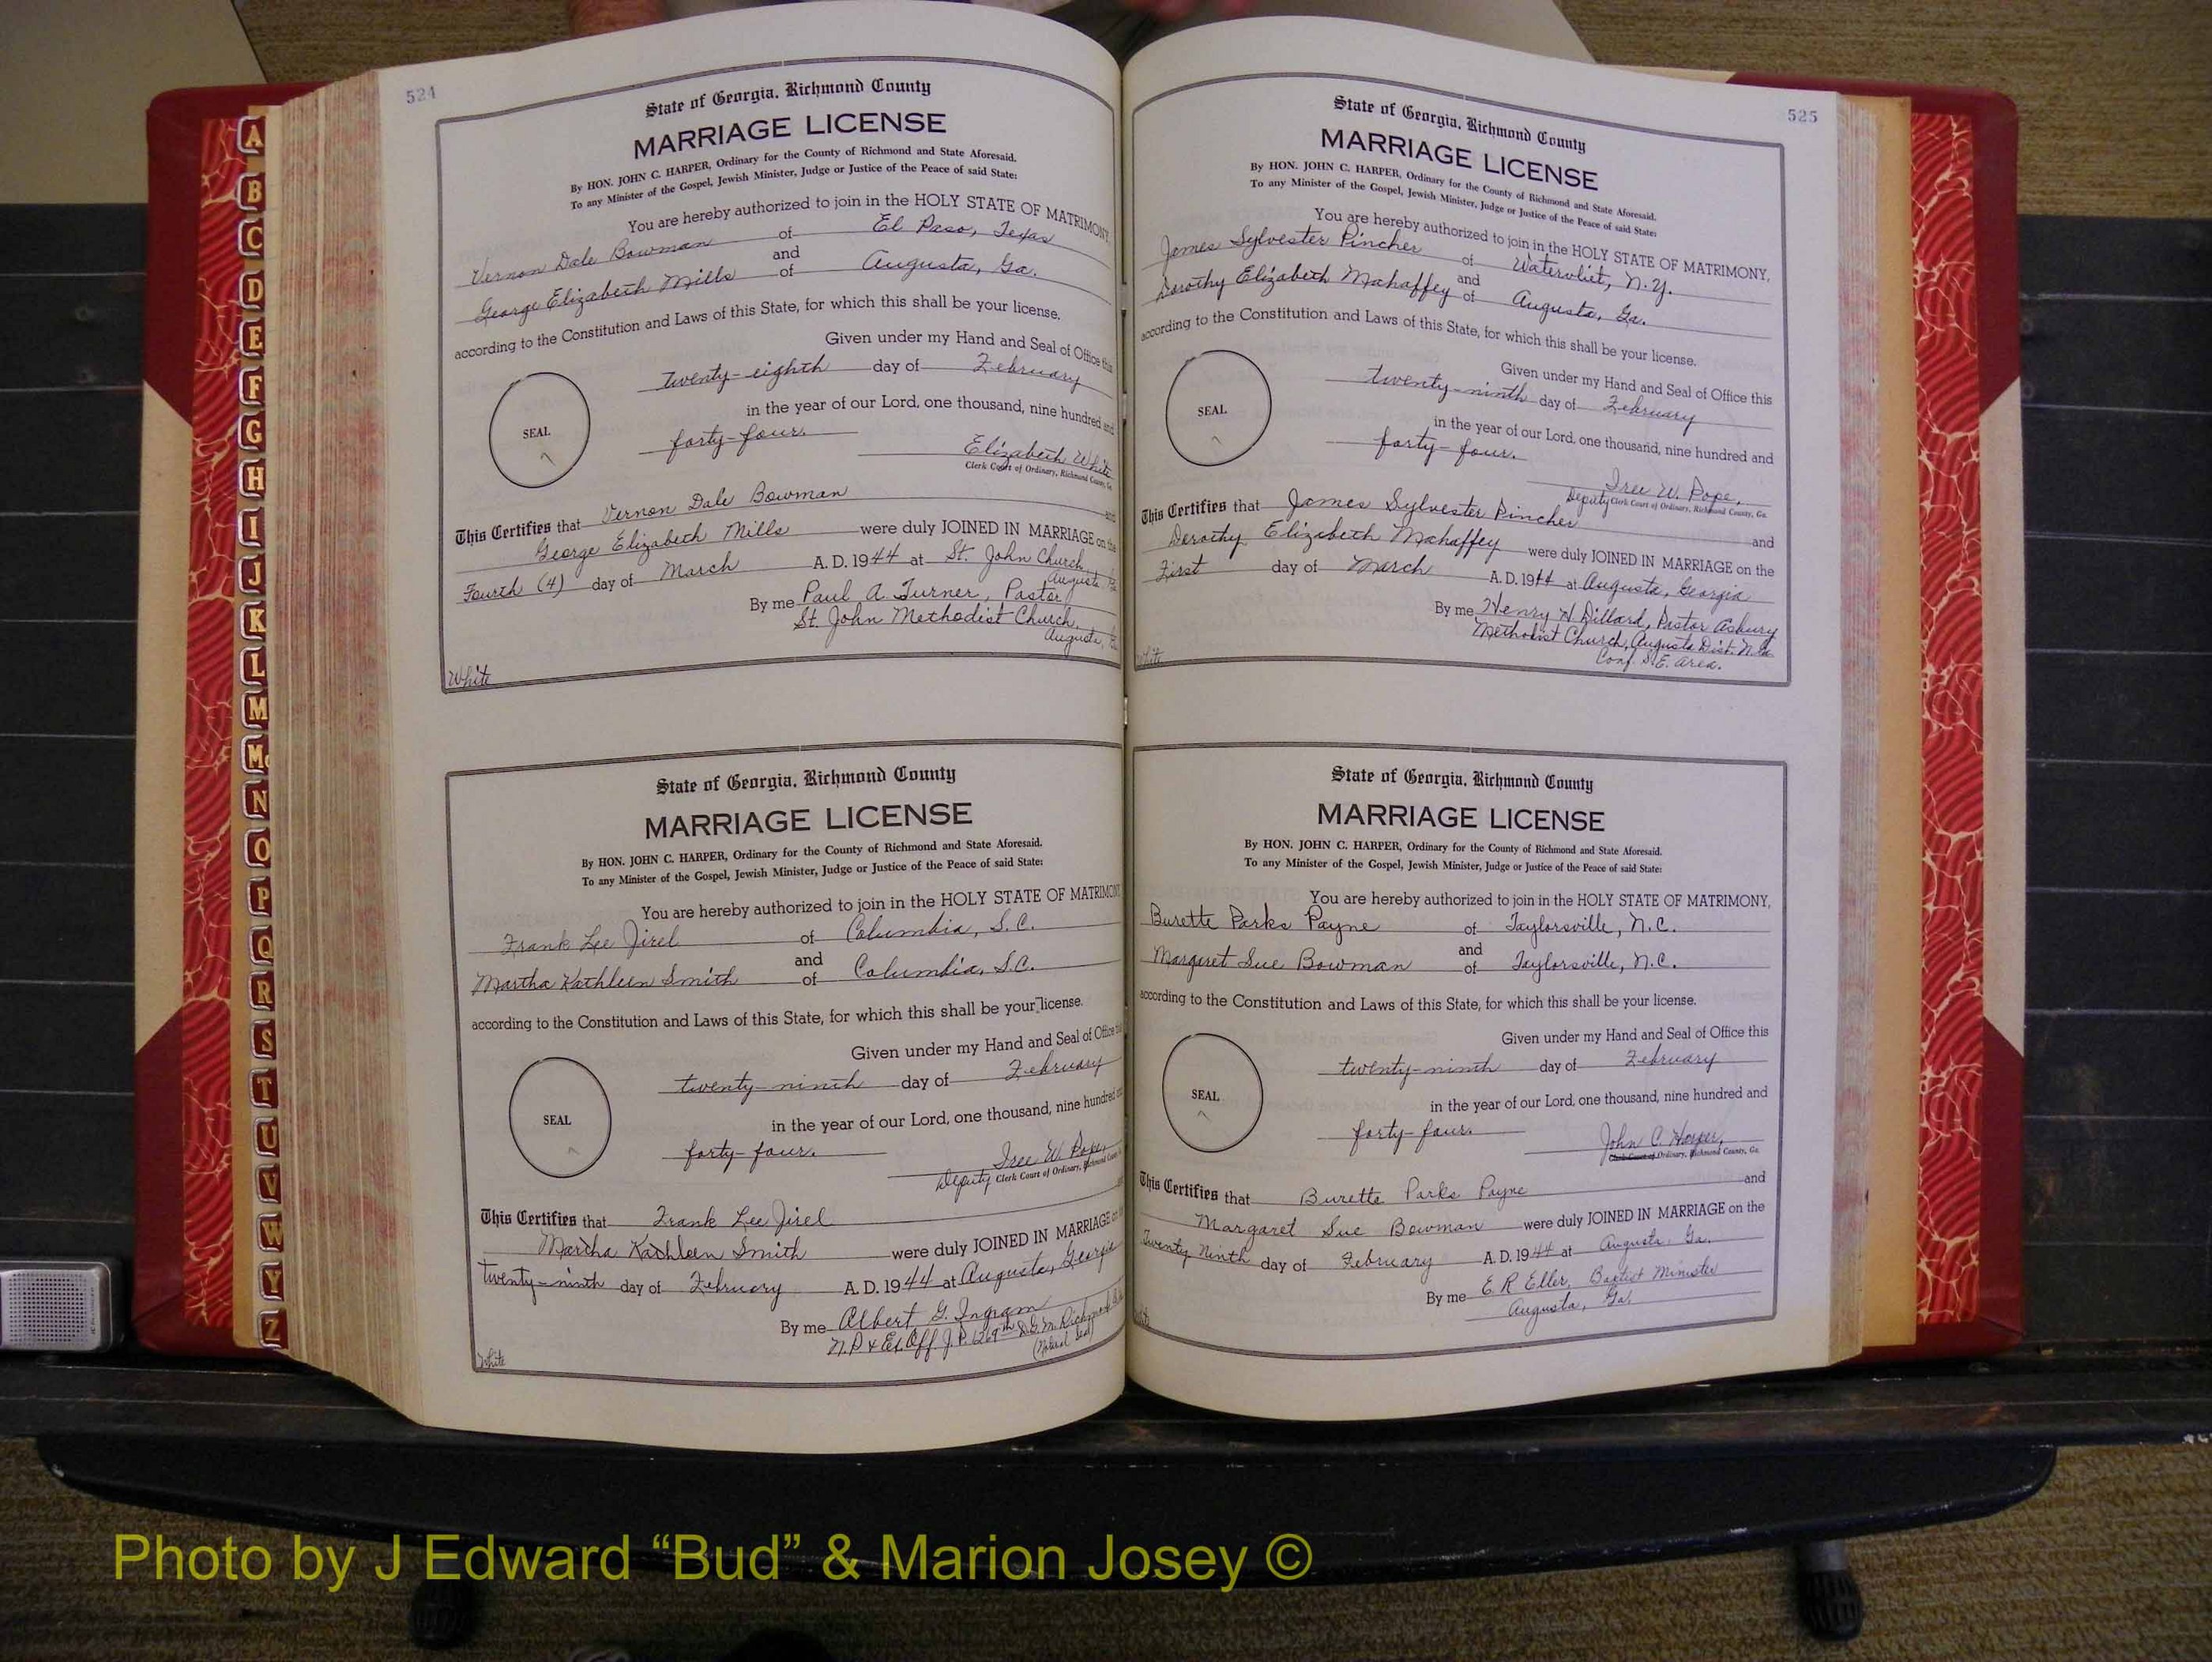 524
State of Georgia, Richmond County
MARRIAGE LICENSE
By HON. JOHN C. HARPER, Ordinary for the County of Richmond and State Aforesaid.
To any Minister of the Gospel, Jewish Minister, Judge or Justice of the Peace of said State:
You are hereby authorized to join in the HOLY STATE OF MATRIMONY,
Vernon Dale Bowman of El Paso, Texas
and
George Elizabeth Mills of Augusta, Ga.
according to the Constitution and Laws of this State, for which this shall be your license.
Given under my Hand and Seal of Office this
twenty-eighth day of February
in the year of our Lord, one thousand, nine hundred and
SEAL
forty-four.
Elizabeth White
Clerk Court of Ordinary, Richmond County, Ga.
This Certifies that Vernon Dale Bowman and
George Elizabeth Mills were duly JOINED IN MARRIAGE on the
Fourth (4) day of March A. D. 1944 at St. John Church,
Augusta
By me Paul A. Turner, Pastor
St. John Methodist Church,
Augusta,
White
State of Georgia, Richmond County
MARRIAGE LICENSE
By HON. JOHN C. HARPER, Ordinary for the County of Richmond and State Aforesaid.
To any Minister of the Gospel, Jewish Minister, Judge or Justice of the Peace of said State:
You are hereby authorized to join in the HOLY STATE OF MATRIMONY
Frank Lee Jirel of Columbia, S. C.
and
Martha Kathleen Smith of Columbia, S.C.
according to the Constitution and Laws of this State, for which this shall be your license.
Given under my Hand and Seal of Office
twenty-ninth day of February
in the year of our Lord, one thousand, nine hundred
SEAL
forty-four.
Iree W. Pope,
Deputy Clerk Court of Ordinary, Richmond County
This Certifies that Frank Lee Jirel
Martha Kathleen Smith were duly JOINED IN MARRIAGE
twenty-ninth day of February A. D. 1944 at Augusta, Georgia
By me Albert G. Ingram
N.P & Ex. Off J. P. 1269th D.G.M. Richmond
(Notarial Seal)
White
525
State of Georgia, Richmond County
MARRIAGE LICENSE
By HON. JOHN C. HARPER, Ordinary for the County of Richmond and State Aforesaid.
To any Minister of the Gospel, Jewish Minister, Judge or Justice of the Peace of said State:
You are hereby authorized to join in the HOLY STATE OF MATRIMONY,
James Sylvester Pincher of Watervliet, N.Y.
and
Dorothy Elizabeth Mahaffey of Augusta, Ga.
according to the Constitution and Laws of this State, for which this shall be your license.
Given under my Hand and Seal of Office this
twenty-ninth day of February
in the year of our Lord, one thousand, nine hundred and
SEAL
forty-four.
Iree W. Pope,
Deputy Clerk Court of Ordinary, Richmond County, Ga.
This Certifies that James Sylvester Pincher and
Dorothy Elizabeth Mahaffey were duly JOINED IN MARRIAGE on the
First day of March A. D. 1944 at Augusta, Georgia
By me Henry H Dillard, Pastor Asbury
Methodist Church, Augusta Dist. N. Ga
Conf. S.E. Area.
White
State of Georgia, Richmond County
MARRIAGE LICENSE
By HON. JOHN C. HARPER, Ordinary for the County of Richmond and State Aforesaid.
To any Minister of the Gospel, Jewish Minister, Judge or Justice of the Peace of said State:
You are hereby authorized to join in the HOLY STATE OF MATRIMONY,
Burette Parks Payne of Taylorsville, N.C.
and
Margaret Sue Bowman of Taylorsville, N.C.
according to the Constitution and Laws of this State, for which this shall be your license.
Given under my Hand and Seal of Office this
twenty-ninth day of February
in the year of our Lord, one thousand, nine hundred and
SEAL
forty-four.
John C. Harper,
Clerk Court of Ordinary, Richmond County, Ga.
This Certifies that Burette Parks Payne and
Margaret Sue Bowman were duly JOINED IN MARRIAGE on the
Twenty Ninth day of February A. D. 1944 at Augusta, Ga.
By me E. R Eller, Baptist Minister
Augusta, Ga.
A
B
C
D
E
F
G
H
I
J
K
L
M
Mc
N
O
P
Q
R
S
T
U
V
W
Y
Z
Photo by J Edward “Bud” & Marion Josey ©